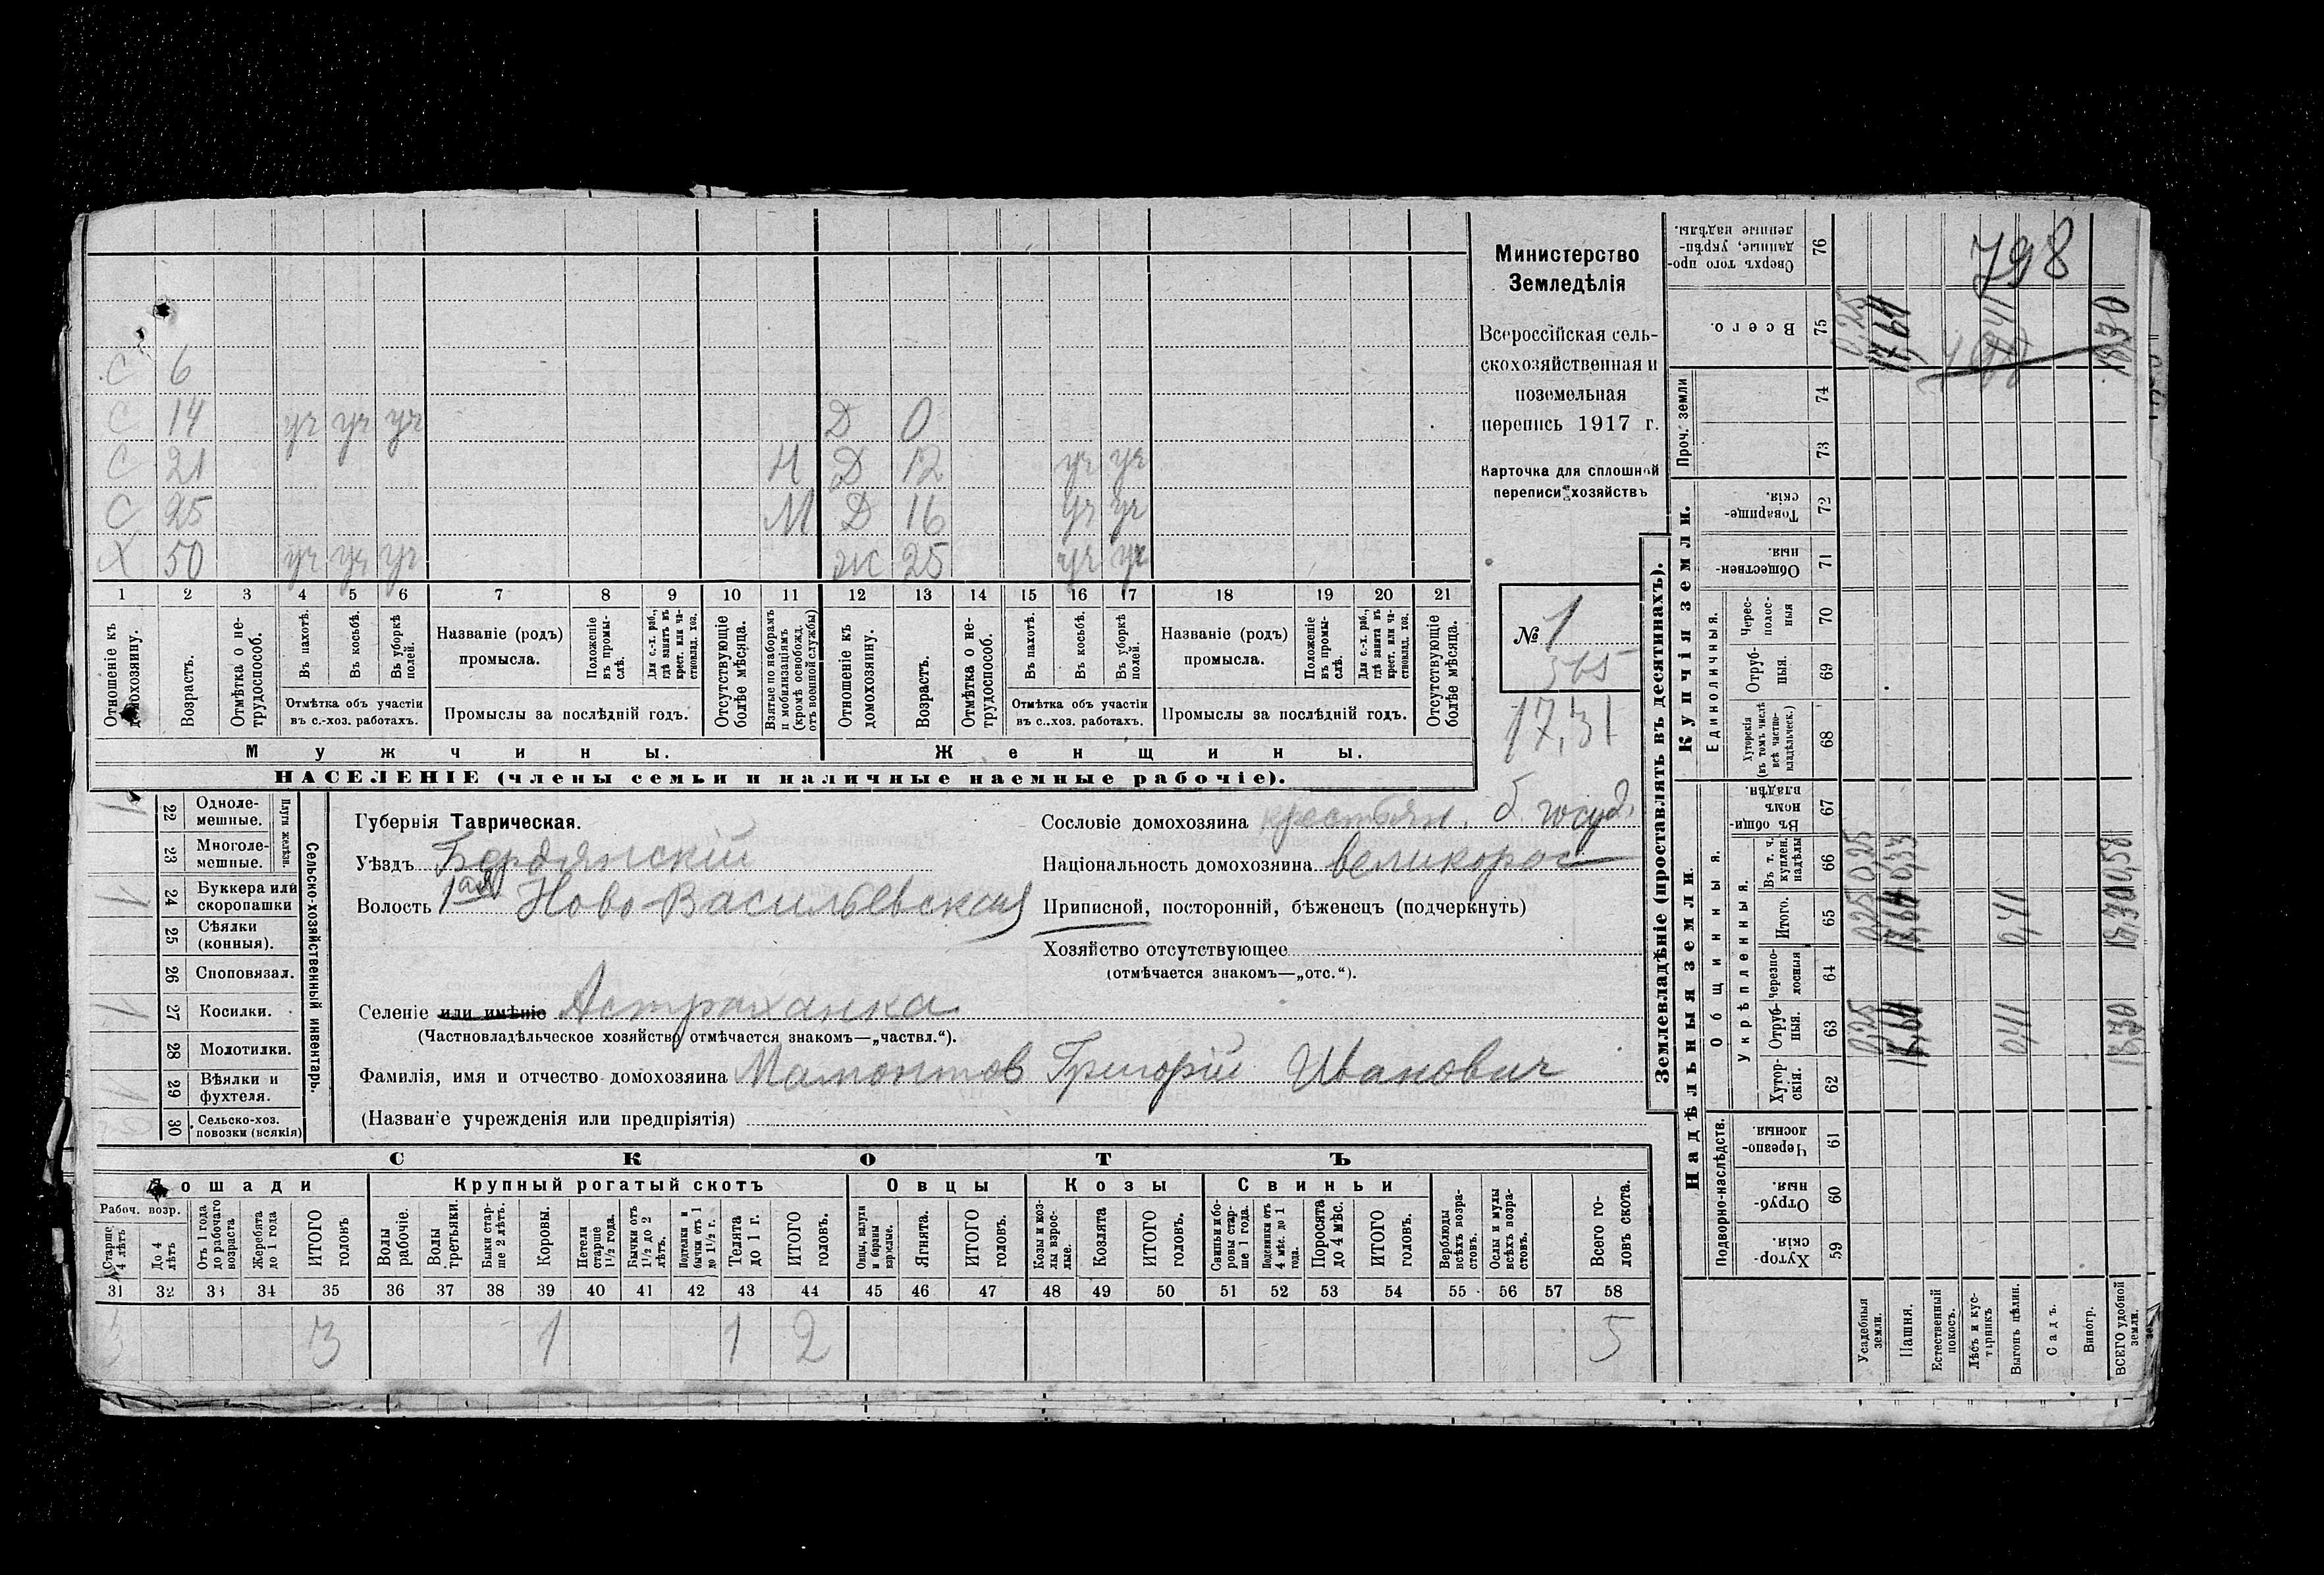 798
Министерство
Земледѣлія
Всероссійская сель-
скохозяйственная и
поземельная
перепись 1917 г.
Карточка для сплошной
переписи хозяйствъ
№ 1
17,31
С 6
С 14 уч уч уч Д 0
С 21 Н Д 12 уч уч
С 25 М Д 16 уч уч
Х 50 уч уч уч Ж 25 уч уч
1 2 3 4 5 6 7 8 9 10 11 12 13 14 15 16 17 18 19 20 21
Отношеніе къ домохозяину.
Возрастъ.
Отмѣтка о не-трудоспособ.
Въ пахотѣ.
Въ косьбѣ.
Въ уборкѣ полей.
Отмѣтка объ участіи
въ с.-хоз. работахъ.
Названіе (родъ)
промысла.
Положеніе въ промы-слѣ.
Для с.-х. раб., гдѣ занятъ въ крест. или ча-стновлад. хоз.
Промыслы за послѣдній годъ.
Отсутствующіе болѣе мѣсяца.
Взятые по наборамъ и мобилизаціямъ (кромѣ освобожд. отъ военной службы)
Отношеніе къ домохозяину.
Возрастъ.
Отмѣтка о не-трудоспособ.
Въ пахотѣ.
Въ косьбѣ.
Въ уборкѣ полей.
Отмѣтка объ участіи
въ с..хоз. работахъ.
Названіе (родъ)
промысла.
Положеніе въ промы-слѣ.
Для с.-х. раб., гдѣ занята въ крест. или ча-стновлад. хоз.
Промыслы за послѣдній годъ.
Отсутствующіе болѣе мѣсяца.
Мужчины. Женщины.
НАСЕЛЕНІЕ (члены семьи и наличные наемные рабочіе).
Сельско-хозяйственный инвентарь.
Плуги желѣзн.
22 Одноле-мешные. 1
23 Многоле-мешные.
24 Буккера или скоропашки 1
25 Сѣялки (конныя).
26 Сноповязал.
27 Косилки. 1
28 Молотилки.
29 Вѣялки и фухтеля. 1
30 Сельско-хоз. повозки (всякія)
Губернія Таврическая.
Уѣздъ Бердянскій
Волость 1ая Ново-Васильевская
Селеніе или имѣніе Астраханка
(Частновладѣльческое хозяйство отмѣчается знакомъ—„частвл.“).
Фамилія, имя и отчество домохозяина Мамонтов Григорій Иванович
(Назван'е учрежденія или предпріятія)
Сословіе домохозяина крестьян. б. госуд.
Національность домохозяина великорос
Приписной, посторонній, бѣженецъ (подчеркнуть)
Хозяйство отсутствующее
(отмѣчается знакомъ—„отс.“).
СКОТЪ
Лошади Крупный рогатый скотъ Овцы Козы Свиньи
Рабоч. возр.
Старше 4 лѣтъ
До 4 лѣтъ
Отъ 1 года до рабочаго возраста
Жеребята до 1 года
ИТОГО головъ
Волы рабочіе.
Волы третьяки.
Быки стар-ше 2 лѣтъ.
Коровы.
Нетели старше 1½ года.
Бычки отъ 1½ до 2 лѣтъ.
Подтелки и бычки отъ 1 до 1½ г.
Телята до 1 г.
ИТОГО головъ.
Овцы, валухи и бараны взрослые.
Ягнята.
ИТОГО головъ.
Козы и коз-лы взрос-лые.
Козлята
ИТОГО головъ.
Свиньи и бо-ровы стар-ше 1 года.
Подсвинки отъ 4 мѣс. до 1 года.
Поросята до 4 мѣс.
ИТОГО головъ.
Верблюды всѣхъ возра-стовъ.
Ослы и мулы всѣхъ возра-стовъ.
Всего го-ловъ скота.
31 32 33 34 35 36 37 38 39 40 41 42 43 44 45 46 47 48 49 50 51 52 53 54 55 56 57 58
3 3 1 1 2 5
Землевладѣніе (проставлять въ десятинахъ).
Надѣльныя земли. Купчія земли.
Подворно-наслѣдств.
Общинныя.
Укрѣпленныя.
Единоличныя.
Проч. земли
59 Хутор-скія.
60 Отруб-ныя.
61 Черезпо-лосныя.
62 Хутор-скія.
63 Отруб-ныя.
64 Черезпо-лосныя
65 Итого.
66 Въ т. ч. куплен. надѣлы
67 Въ общи-номъ владѣн.
68 Хуторскія (въ томъ числѣ всѣ частно-владѣльческ.)
69 Отруб-ныя.
70 Черес-полос-ныя
71 Обществен-ныя.
72 Товарище-скія.
73
74
75 Всего.
76 Сверхъ того про-данные, укрѣп-ленные надѣлы.
Усадебныя земли. 0,25 0,25 0,25 0,25
Пашня. 17,64
Естественный покосъ.
Лѣсъ и кус-тарникъ
Выгонъ цѣлин. 0,41 0,41
Садъ.
Виногр.
ВСЕГО удобной земли. 0,58